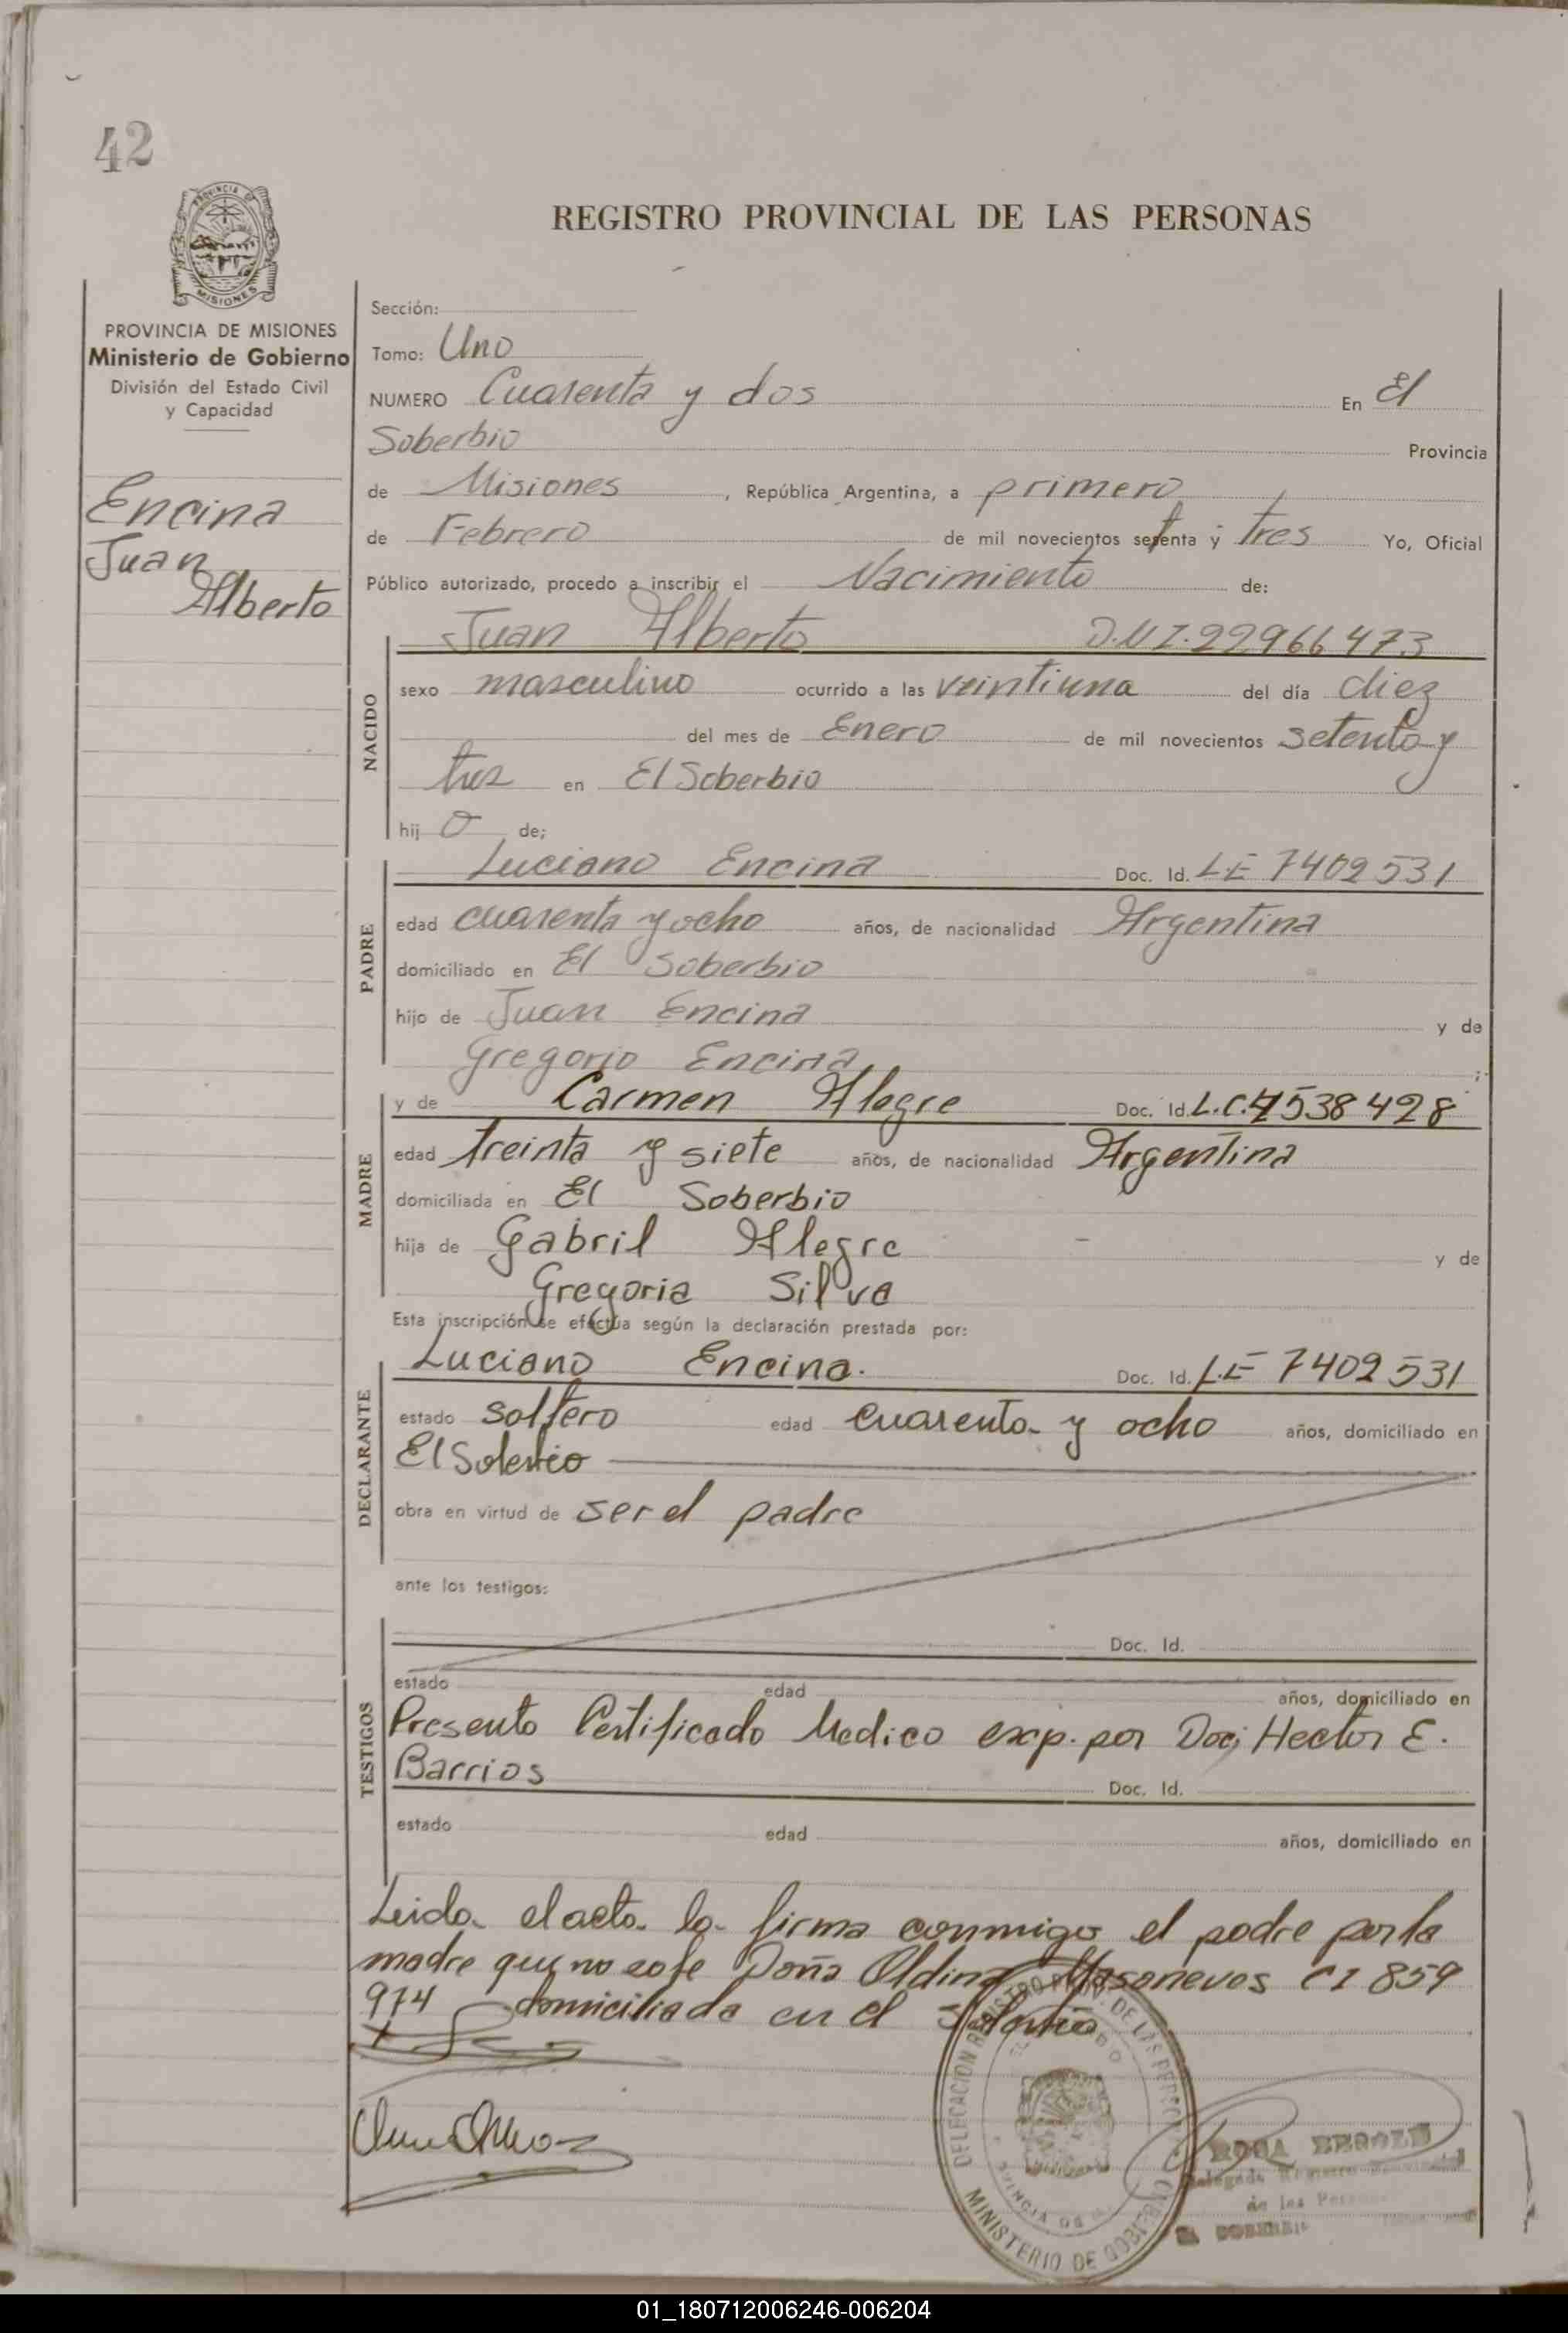 42
PROVINCIA DE
MISIONES
REGISTRO PROVINCIAL DE LAS PERSONAS
PROVINCIA DE MISIONES
Ministerio de Gobierno
División del Estado Civil
y Capacidad
Encina
Juan
Alberto
Sección:
Tomo: Uno
NUMERO Cuarenta y dos En El
Soberbio Provincia
de Misiones, República Argentina, a primero
de Febrero de mil novecientos setenta y tres Yo, Oficial
Público autorizado, procedo a inscribir el Nacimiento de:
NACIDO
Juan Alberto D.N.I. 22966473
sexo masculino ocurrido a las veintiuna del día diez
del mes de Enero de mil novecientos setenta y
tres en El Soberbio
hij o de;
PADRE
Luciano Encina Doc. Id. LE 7402531
edad cuarenta y ocho años, de nacionalidad Argentina
domiciliado en El Soberbio
hijo de Juan Encina y de
Gregorio Encina;
MADRE
y de Carmen Alegre Doc. Id. L.C. 4538428
edad treinta y siete años, de nacionalidad Argentina
domiciliada en El Soberbio
hija de Gabril Alegre y de
Gregoria Silva
Esta inscripción se efectúa según la declaración prestada por:
DECLARANTE
Luciano Encina. Doc. Id. L.E 7402531
estado soltero edad cuarenta y ocho años, domiciliado en
El Soberbio
obra en virtud de ser el padre
ante los testigos:
TESTIGOS
Doc. Id.
estado edad años, domiciliado en
Presento Certificado Medico exp. por Doc; Hector E.
Barrios Doc. Id.
estado edad años, domiciliado en
Leida el acta la firma conmigo el padre por la
madre que no sabe Doña Oldina CI 859
974 domiciliada en el Soberbio
DELEGACION REGISTRO PROV. DE LAS PERSONAS
MINISTERIO DE GOBIERNO
Delegada Registro Provincial
de las Personas
EL SOBERBIO
01_180712006246-006204